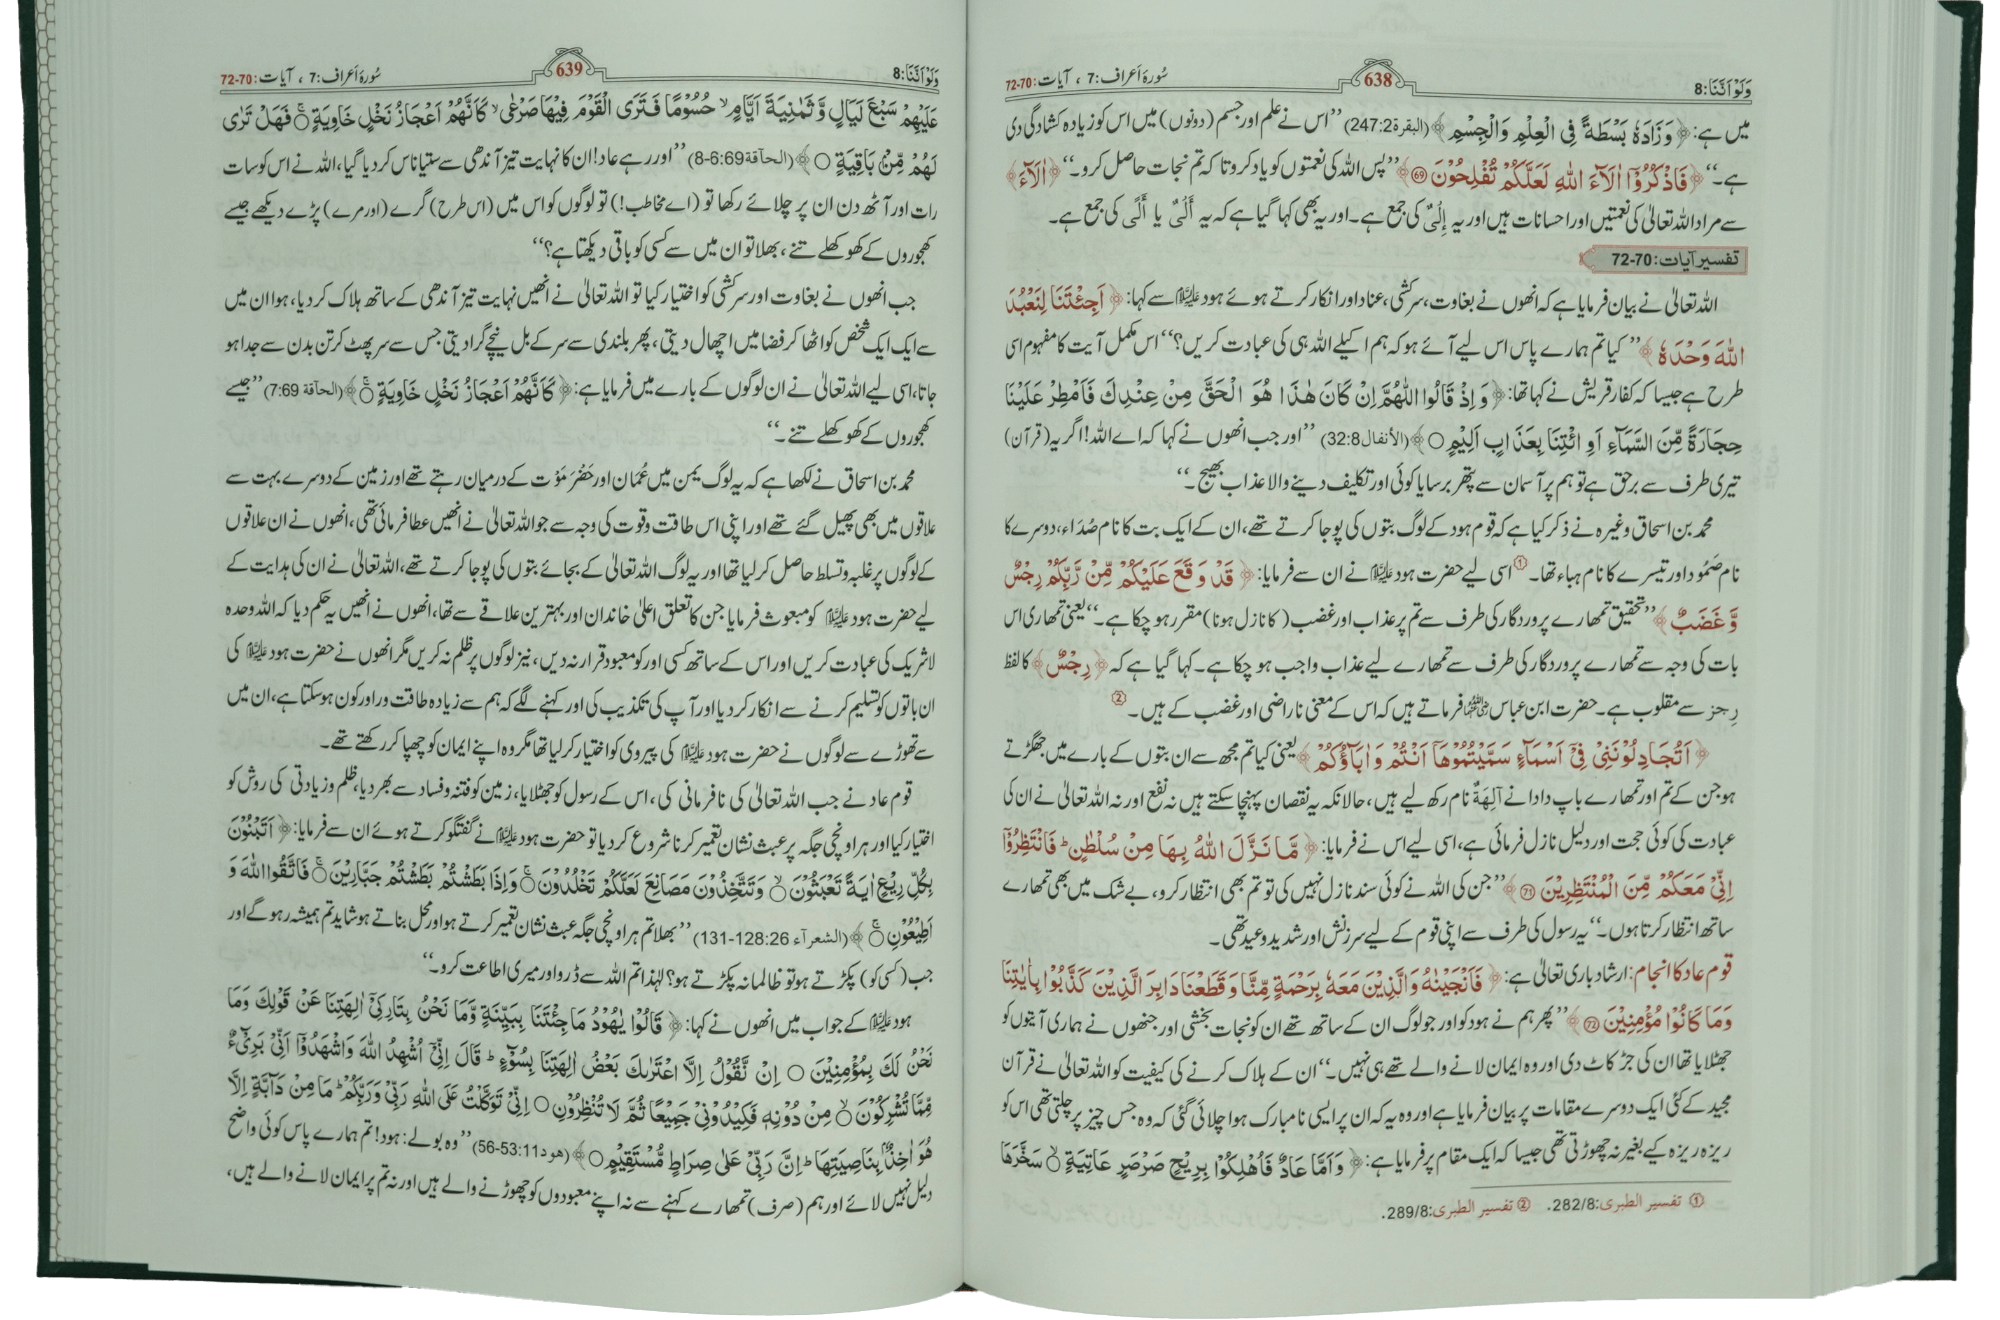 وَلَوْ اَنَّنَا: 8
638
سُورۂ اَعراف: 7 ، آیات: 70-72
میں ہے: ﴿ وَزَادَهٗ بَسْطَةً فِی الْعِلْمِ وَالْجِسْمِ ﴾ (البقرة 247:2) ’’اس نے علم اور جسم (دونوں) میں اس کو زیادہ کشادگی دی
ہے۔‘‘ ﴿ فَاذْكُرُوْۤا اٰلَآءَ اللّٰهِ لَعَلَّكُمْ تُفْلِحُوْنَ ﴿69﴾﴾ ’’پس اللہ کی نعمتوں کو یاد کرو تا کہ تم نجات حاصل کرو۔‘‘ ﴿ اٰلَآءَ ﴾
سے مراد اللہ تعالیٰ کی نعمتیں اور احسانات ہیں اور یہ إِلْیٌ کی جمع ہے۔ اور یہ بھی کہا گیا ہے کہ یہ أَلْیٌ یا أَلًی کی جمع ہے۔
تفسیر آیات: 70-72
اللہ تعالیٰ نے بیان فرمایا ہے کہ انھوں نے بغاوت، سرکشی، عناد اور انکار کرتے ہوئے ہود علیہ السلام سے کہا: ﴿ اَجِئْتَنَا لِنَعْبُدَ
اللّٰهَ وَحْدَهٗ ﴾ ’’کیا تم ہمارے پاس اس لیے آئے ہو کہ ہم اکیلے اللہ ہی کی عبادت کریں؟‘‘ اس مکمل آیت کا مفہوم اسی
طرح ہے جیسا کہ کفار قریش نے کہا تھا: ﴿ وَاِذْ قَالُوا اللّٰهُمَّ اِنْ كَانَ هٰذَا هُوَ الْحَقَّ مِنْ عِنْدِكَ فَاَمْطِرْ عَلَیْنَا
حِجَارَةً مِّنَ السَّمَآءِ اَوِ ائْتِنَا بِعَذَابٍ اَلِیْمٍ ۝ ﴾ (الأنفال 32:8) ’’اور جب انھوں نے کہا کہ اے اللہ! اگر یہ (قرآن)
تیری طرف سے برحق ہے تو ہم پر آسمان سے پتھر برسا یا کوئی اور تکلیف دینے والا عذاب بھیج۔‘‘
محمد بن اسحاق وغیرہ نے ذکر کیا ہے کہ قوم ہود کے لوگ بتوں کی پوجا کرتے تھے، ان کے ایک بت کا نام صُدَاء، دوسرے کا
نام صَمُود اور تیسرے کا نام ہباء تھا۔① اسی لیے حضرت ہود علیہ السلام نے ان سے فرمایا: ﴿ قَدْ وَقَعَ عَلَیْكُمْ مِّنْ رَّبِّكُمْ رِجْسٌ
وَّغَضَبٌ ﴾ ’’تحقیق تمھارے پروردگار کی طرف سے تم پر عذاب اور غضب (کا نازل ہونا) مقرر ہو چکا ہے۔‘‘ یعنی تمھاری اس
بات کی وجہ سے تمھارے پروردگار کی طرف سے تمھارے لیے عذاب واجب ہو چکا ہے۔ کہا گیا ہے کہ ﴿ رِجْسٌ ﴾ کا لفظ
رِجز سے مقلوب ہے۔ حضرت ابن عباس رضی اللہ عنہما فرماتے ہیں کہ اس کے معنی ناراضی اور غضب کے ہیں۔②
﴿ اَتُجَادِلُوْنَنِیْ فِیْۤ اَسْمَآءٍ سَمَّیْتُمُوْهَاۤ اَنْتُمْ وَاٰبَآؤُكُمْ ﴾ یعنی کیا تم مجھ سے ان بتوں کے بارے میں جھگڑتے
ہو جن کے تم اور تمھارے باپ دادا نے آلِهَةٌ نام رکھ لیے ہیں، حالانکہ یہ نقصان پہنچا سکتے ہیں نہ نفع اور نہ اللہ تعالیٰ نے ان کی
عبادت کی کوئی حجت اور دلیل نازل فرمائی ہے، اسی لیے اس نے فرمایا: ﴿ مَّا نَزَّلَ اللّٰهُ بِهَا مِنْ سُلْطٰنٍ ؕ فَانْتَظِرُوْۤا
اِنِّیْ مَعَكُمْ مِّنَ الْمُنْتَظِرِیْنَ ﴿71﴾﴾ ’’جن کی اللہ نے کوئی سند نازل نہیں کی تو تم بھی انتظار کرو، بے شک میں بھی تمھارے
ساتھ انتظار کرتا ہوں۔‘‘ یہ رسول کی طرف سے اپنی قوم کے لیے سرزنش اور شدید وعید تھی۔
قوم عاد کا انجام: ارشاد باری تعالیٰ ہے: ﴿ فَاَنْجَیْنٰهُ وَالَّذِیْنَ مَعَهٗ بِرَحْمَةٍ مِّنَّا وَقَطَعْنَا دَابِرَ الَّذِیْنَ كَذَّبُوْا بِاٰیٰتِنَا
وَمَا كَانُوْا مُؤْمِنِیْنَ ﴿72﴾﴾ ’’پھر ہم نے ہود کو اور جو لوگ ان کے ساتھ تھے ان کو نجات بخشی اور جنھوں نے ہماری آیتوں کو
جھٹلایا تھا ان کی جڑ کاٹ دی اور وہ ایمان لانے والے تھے ہی نہیں۔‘‘ ان کے ہلاک کرنے کی کیفیت کو اللہ تعالیٰ نے قرآن
مجید کے کئی ایک دوسرے مقامات پر بیان فرمایا ہے اور وہ یہ کہ ان پر ایسی نامبارک ہوا چلائی گئی کہ وہ جس چیز پر چلتی تھی اس کو
ریزہ ریزہ کیے بغیر نہ چھوڑتی تھی جیسا کہ ایک مقام پر فرمایا ہے: ﴿ وَاَمَّا عَادٌ فَاُهْلِكُوْا بِرِیْحٍ صَرْصَرٍ عَاتِیَةٍ ۝ سَخَّرَهَا
① تفسیر الطبری: 282/8. ② تفسیر الطبری: 289/8.
وَلَوْ اَنَّنَا: 8
639
سُورۂ اَعراف: 7 ، آیات: 70-72
عَلَیْهِمْ سَبْعَ لَیَالٍ وَّثَمٰنِیَةَ اَیَّامٍ ۙ حُسُوْمًا فَتَرَی الْقَوْمَ فِیْهَا صَرْعٰی ۙ كَاَنَّهُمْ اَعْجَازُ نَخْلٍ خَاوِیَةٍ ۝ فَهَلْ تَرٰی
لَهُمْ مِّنْۢ بَاقِیَةٍ ۝ ﴾ (الحآقة 6:69-8) ’’اور رہے عاد! ان کا نہایت تیز آندھی سے ستیاناس کر دیا گیا، اللہ نے اس کو سات
رات اور آٹھ دن ان پر چلائے رکھا تو (اے مخاطب!) تو لوگوں کو اس میں (اس طرح) گرے (اور مرے) پڑے دیکھے جیسے
کھجوروں کے کھوکھلے تنے، بھلا تو ان میں سے کسی کو باقی دیکھتا ہے؟‘‘
جب انھوں نے بغاوت اور سرکشی کو اختیار کیا تو اللہ تعالیٰ نے انھیں نہایت تیز آندھی کے ساتھ ہلاک کر دیا، ہوا ان میں
سے ایک ایک شخص کو اٹھا کر فضا میں اچھال دیتی، پھر بلندی سے سر کے بل نیچے گرا دیتی جس سے سر پھٹ کر تن بدن سے جدا ہو
جاتا، اسی لیے اللہ تعالیٰ نے ان لوگوں کے بارے میں فرمایا ہے: ﴿ كَاَنَّهُمْ اَعْجَازُ نَخْلٍ خَاوِیَةٍ ۝ ﴾ (الحآقة 7:69) ’’جیسے
کھجوروں کے کھوکھلے تنے۔‘‘
محمد بن اسحاق نے لکھا ہے کہ یہ لوگ یمن میں عُمان اور حَضْرَمَوْت کے درمیان رہتے تھے اور زمین کے دوسرے بہت سے
علاقوں میں بھی پھیل گئے تھے اور اپنی اس طاقت و قوت کی وجہ سے جو اللہ تعالیٰ نے انھیں عطا فرمائی تھی، انھوں نے ان علاقوں
کے لوگوں پر غلبہ و تسلط حاصل کر لیا تھا اور یہ لوگ اللہ تعالیٰ کے بجائے بتوں کی پوجا کرتے تھے، اللہ تعالیٰ نے ان کی ہدایت کے
لیے حضرت ہود علیہ السلام کو مبعوث فرمایا جن کا تعلق اعلیٰ خاندان اور بہترین علاقے سے تھا، انھوں نے انھیں یہ حکم دیا کہ اللہ وحدہ
لا شریک کی عبادت کریں اور اس کے ساتھ کسی اور کو معبود قرار نہ دیں، نیز لوگوں پر ظلم نہ کریں مگر انھوں نے حضرت ہود علیہ السلام کی
ان باتوں کو تسلیم کرنے سے انکار کر دیا اور آپ کی تکذیب کی اور کہنے لگے کہ ہم سے زیادہ طاقت ور اور کون ہو سکتا ہے، ان میں
سے تھوڑے سے لوگوں نے حضرت ہود علیہ السلام کی پیروی کو اختیار کر لیا تھا مگر وہ اپنے ایمان کو چھپا کر رکھتے تھے۔
قوم عاد نے جب اللہ تعالیٰ کی نافرمانی کی، اس کے رسول کو جھٹلایا، زمین کو فتنہ و فساد سے بھر دیا، ظلم و زیادتی کی روش کو
اختیار کیا اور ہر اونچی جگہ پر عبث نشان تعمیر کرنا شروع کر دیا تو حضرت ہود علیہ السلام نے گفتگو کرتے ہوئے ان سے فرمایا: ﴿ اَتَبْنُوْنَ
بِكُلِّ رِیْعٍ اٰیَةً تَعْبَثُوْنَ ۝ وَتَتَّخِذُوْنَ مَصَانِعَ لَعَلَّكُمْ تَخْلُدُوْنَ ۝ وَاِذَا بَطَشْتُمْ بَطَشْتُمْ جَبَّارِیْنَ ۝ فَاتَّقُوا اللّٰهَ وَ
اَطِیْعُوْنِ ۝ ﴾ (الشعرآء 128:26-131) ’’بھلا تم ہر اونچی جگہ عبث نشان تعمیر کرتے ہو اور محل بناتے ہو شاید تم ہمیشہ رہو گے اور
جب (کسی کو) پکڑتے ہو تو ظالمانہ پکڑتے ہو؟ لہٰذا تم اللہ سے ڈرو اور میری اطاعت کرو۔‘‘
ہود علیہ السلام کے جواب میں انھوں نے کہا: ﴿ قَالُوْا یٰهُوْدُ مَا جِئْتَنَا بِبَیِّنَةٍ وَّمَا نَحْنُ بِتَارِكِیْۤ اٰلِهَتِنَا عَنْ قَوْلِكَ وَمَا
نَحْنُ لَكَ بِمُؤْمِنِیْنَ ۝ اِنْ نَّقُوْلُ اِلَّا اعْتَرٰىكَ بَعْضُ اٰلِهَتِنَا بِسُوْٓءٍ ؕ قَالَ اِنِّیْۤ اُشْهِدُ اللّٰهَ وَاشْهَدُوْۤا اَنِّیْ بَرِیْٓءٌ
مِّمَّا تُشْرِكُوْنَ ۝ مِنْ دُوْنِهٖ فَكِیْدُوْنِیْ جَمِیْعًا ثُمَّ لَا تُنْظِرُوْنِ ۝ اِنِّیْ تَوَكَّلْتُ عَلَی اللّٰهِ رَبِّیْ وَرَبِّكُمْ ؕ مَا مِنْ دَآبَّةٍ اِلَّا
هُوَ اٰخِذٌۢ بِنَاصِیَتِهَا ؕ اِنَّ رَبِّیْ عَلٰی صِرَاطٍ مُّسْتَقِیْمٍ ۝ ﴾ (هود 53:11-56) ’’وہ بولے: ہود! تم ہمارے پاس کوئی واضح
دلیل نہیں لائے اور ہم (صرف) تمھارے کہنے سے نہ اپنے معبودوں کو چھوڑنے والے ہیں اور نہ تم پر ایمان لانے والے ہیں،